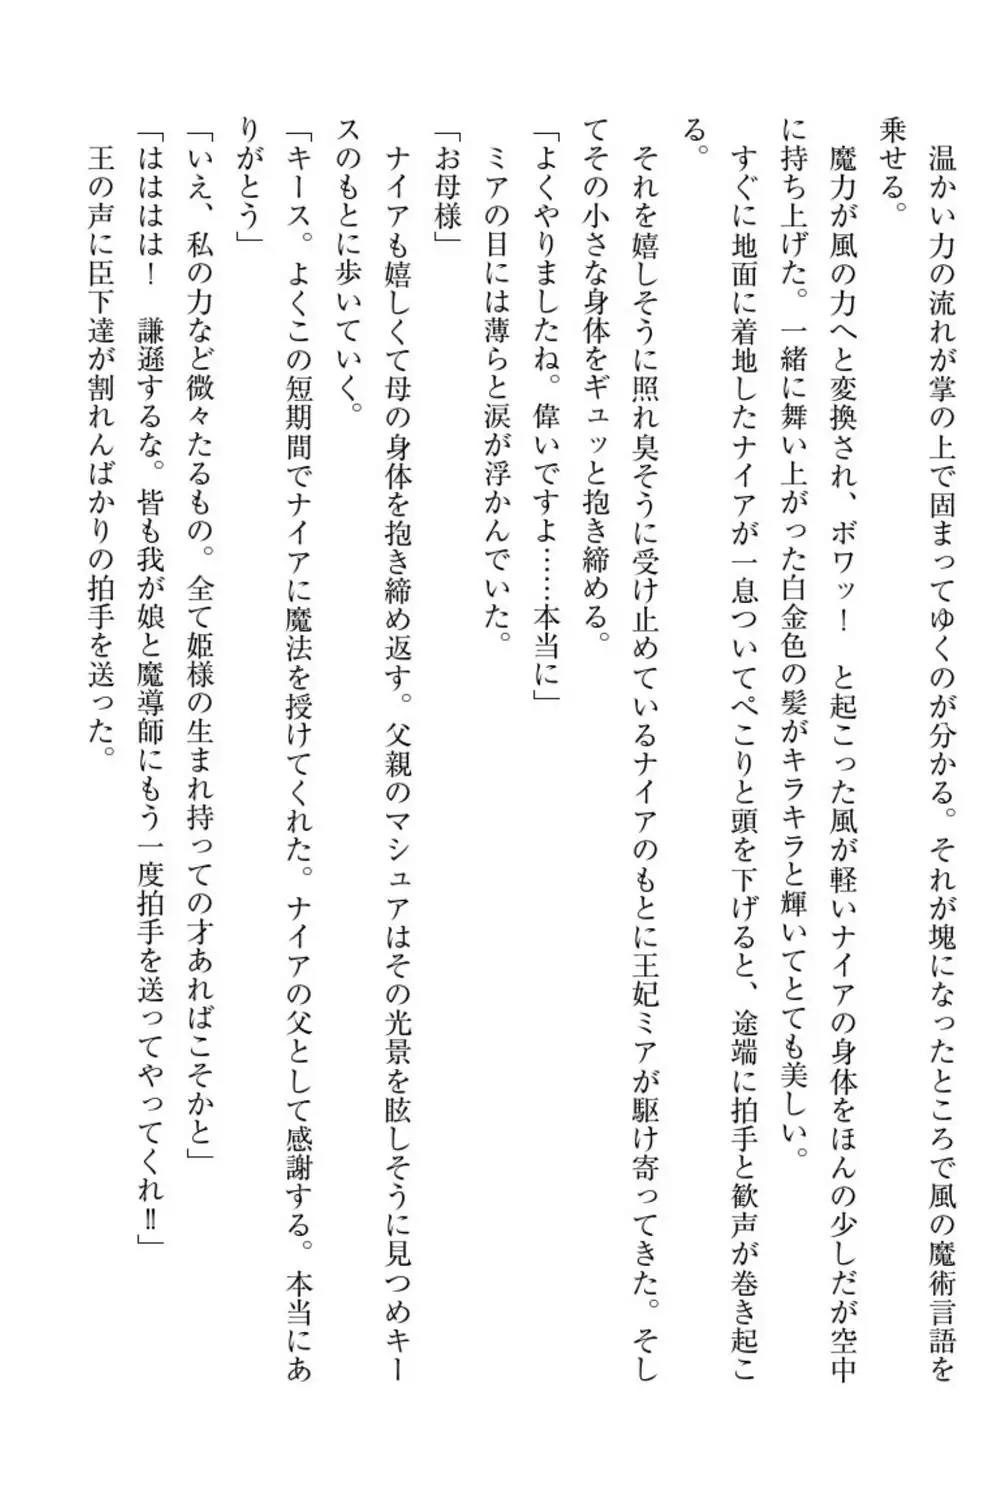 温かい力の流れが掌の上で固まってゆくのが分かる。それが塊になったところで風の魔術言語を
乗せる。
魔力が風の力へと変換され、ボワッ！　と起こった風が軽いナイアの身体をほんの少しだが空中
に持ち上げた。一緒に舞い上がった白金色の髪がキラキラと輝いてとても美しい。
すぐに地面に着地したナイアが一息ついてぺこりと頭を下げると、途端に拍手と歓声が巻き起こ
る。
それを嬉しそうに照れ臭そうに受け止めているナイアのもとに王妃ミアが駆け寄ってきた。そし
てその小さな身体をギュッと抱き締める。
「よくやりましたね。偉いですよ……本当に」
ミアの目には薄らと涙が浮かんでいた。
「お母様」
ナイアも嬉しくて母の身体を抱き締め返す。父親のマシュアはその光景を眩しそうに見つめキー
スのもとに歩いていく。
「キース。よくこの短期間でナイアに魔法を授けてくれた。ナイアの父として感謝する。本当にあ
りがとう」
「いえ、私の力など微々たるもの。全て姫様の生まれ持っての才あればこそかと」
「はははは！　謙遜するな。皆も我が娘と魔導師にもう一度拍手を送ってやってくれ‼」
王の声に臣下達が割れんばかりの拍手を送った。